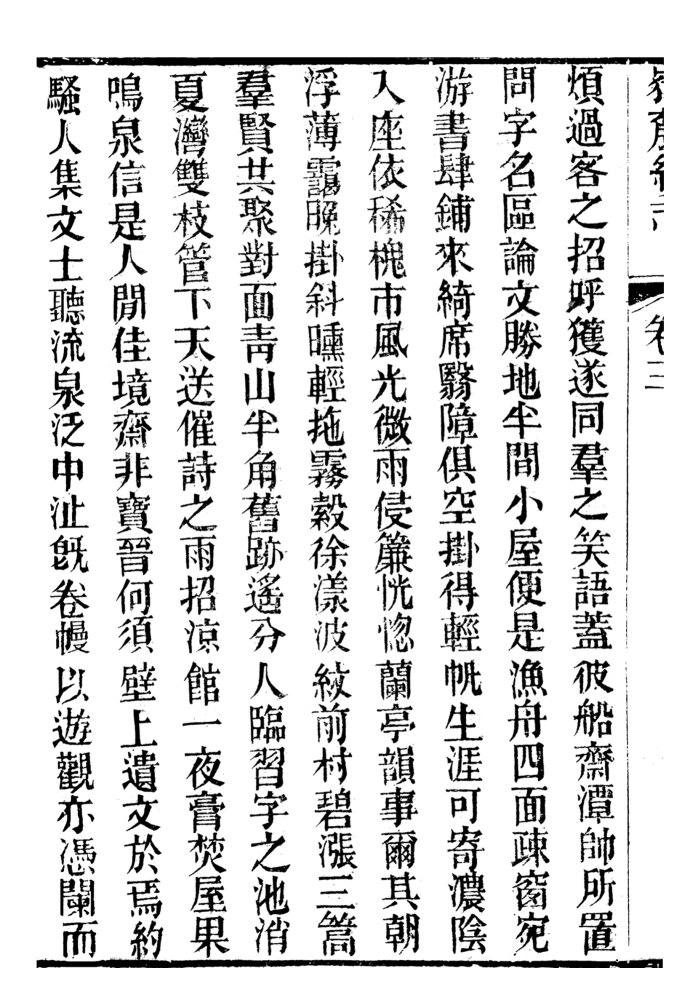 卷三
煩過客之招呼獲遂同羣之笑語蓋彼船齋潭帥所置
問字名區論文勝地半間小屋便是漁舟四面疎窗宛
游書肆鋪來綺席翳障俱空掛得輕帆生涯可寄濃陰
入座依稀槐市風光微雨侵簾恍惚蘭亭韻事爾其朝
浮薄靄晚掛斜曛輕拖霧縠徐漾波紋前村碧漲三篙
羣賢共聚對面青山半角舊跡遙分人臨習字之池消
夏灣雙枝管下天送催詩之雨招涼館一夜膏焚屋果
鳴泉信是人閒佳境齋非寶晉何須壁上遺文於焉約
騷人集文士聽流泉泛中沚旣卷幔以遊觀亦憑闌而